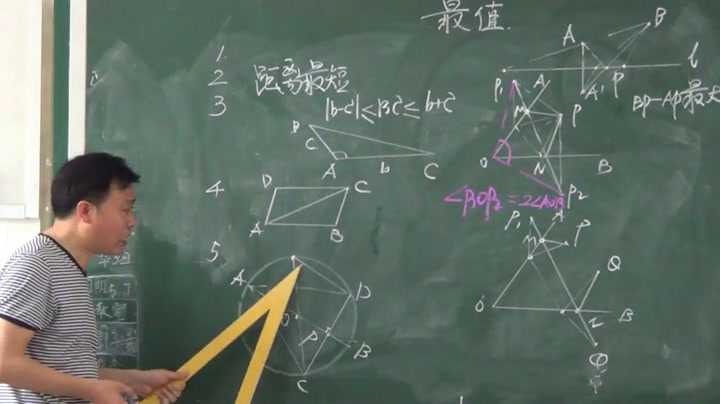 最值
1
2 距离最短
3
|b-c|≤BC≤b+c
B
C
A b C
4 D C
A B
5
A D
O P
B
C
A B
P l
A1
BP-AP最大
P1 A
M P
O N B
P2
∠P1OP2=2∠AOB
P1 A
M P
Q
O B